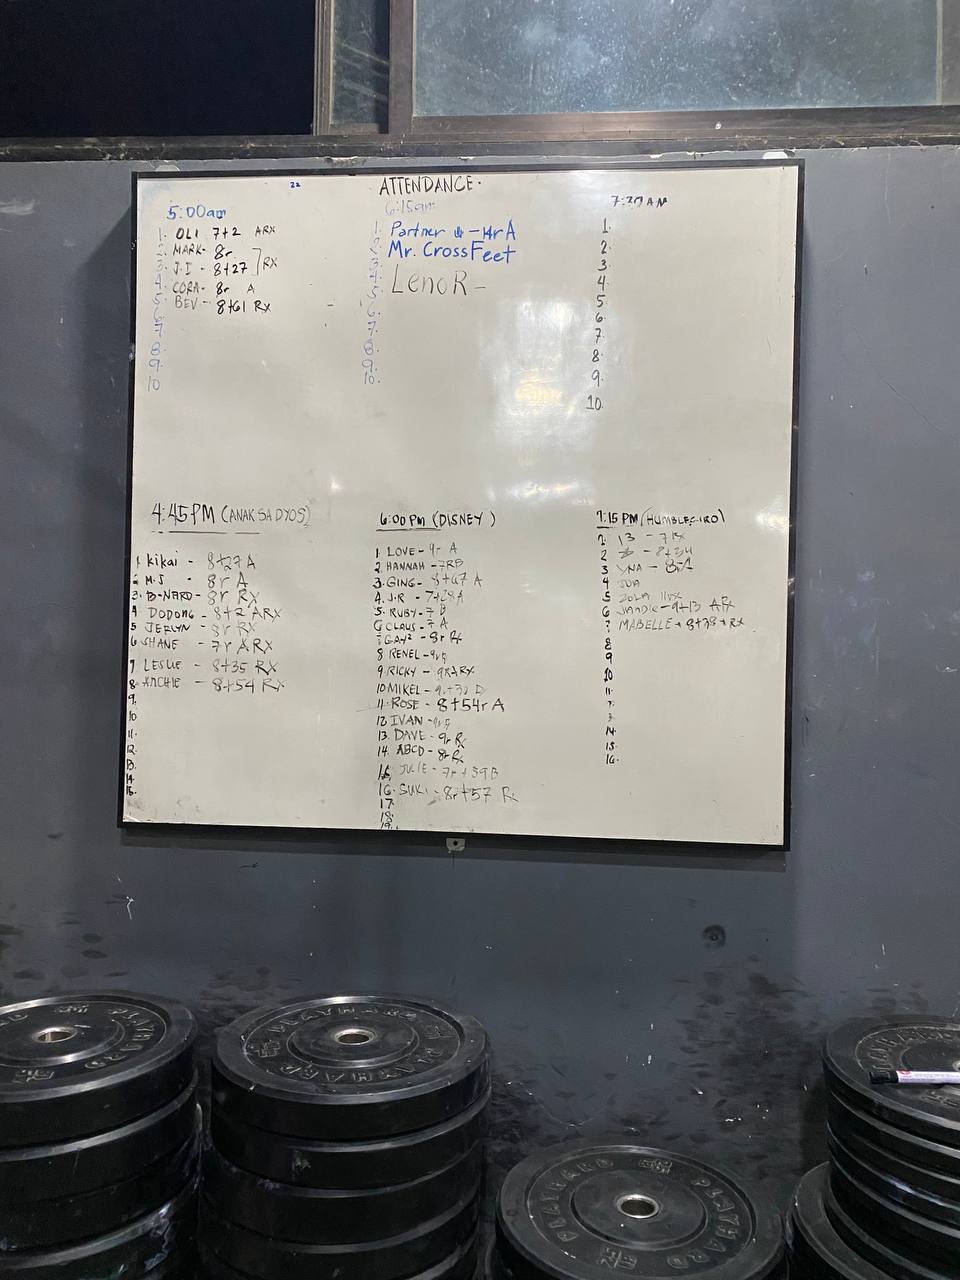 22
ATTENDANCE.
5:00am
1. OLI 7+2 ARX
2. MARK- 8r
3. J.I - 8+27 RX
4. CORA- 8r A
5. BEV - 8+61 Rx
6.
7.
8.
9.
10
6:15am
1. Partner - 14r A
2. Mr. CrossFeet
3.
4. LenoR -
5.
6.
7.
8.
9.
10.
7:30AM
1.
2.
3.
4
5.
6.
7.
8.
9.
10.
4:45PM (ANAK SA DYOS)
1 kikai - 8+27 A
2. M.J - 8r A
3. B-NARD- 8r RX
4 DODONG - 8+2 ARX
5 JERLYN - 8r RX
6 SHANE - 7r ARX
7 LESLIE - 8+35 RX
8. ARCHIE - 8+54 RX
9.
10
11.
12.
13.
14.
15.
6:00 PM (DISNEY)
1. LOVE - 9r A
2. HANNAH - 7RB
3. GING - 8+67 A
4. J.R - 7+28A
5. RUBY- 7 B
6 CLAUS - 7 A
7 GAY² - 8r Rx
8 RENEL -
9 RICKY - RX
10 MIKEL -
11. ROSE - 8+54r A
12 IVAN -
13. DAVE - 9r Rx
14. ABCD - 8r Rx
15. JULIE - 7r+59B
16. SUKI - 8r+57 Rx
17
18.
19.
7:15 PM (HUMBLE
1.
2
3 YNA - 8rA
4
5 ZOLA
6 - 9+13 ARx
7 MABELLE - 8+38 + RX
8
9
10
11.
14.
15.
16.
PLAYHARD
PLAYHARD
PLAYHARD
PLAYHARD
PLAYHARD